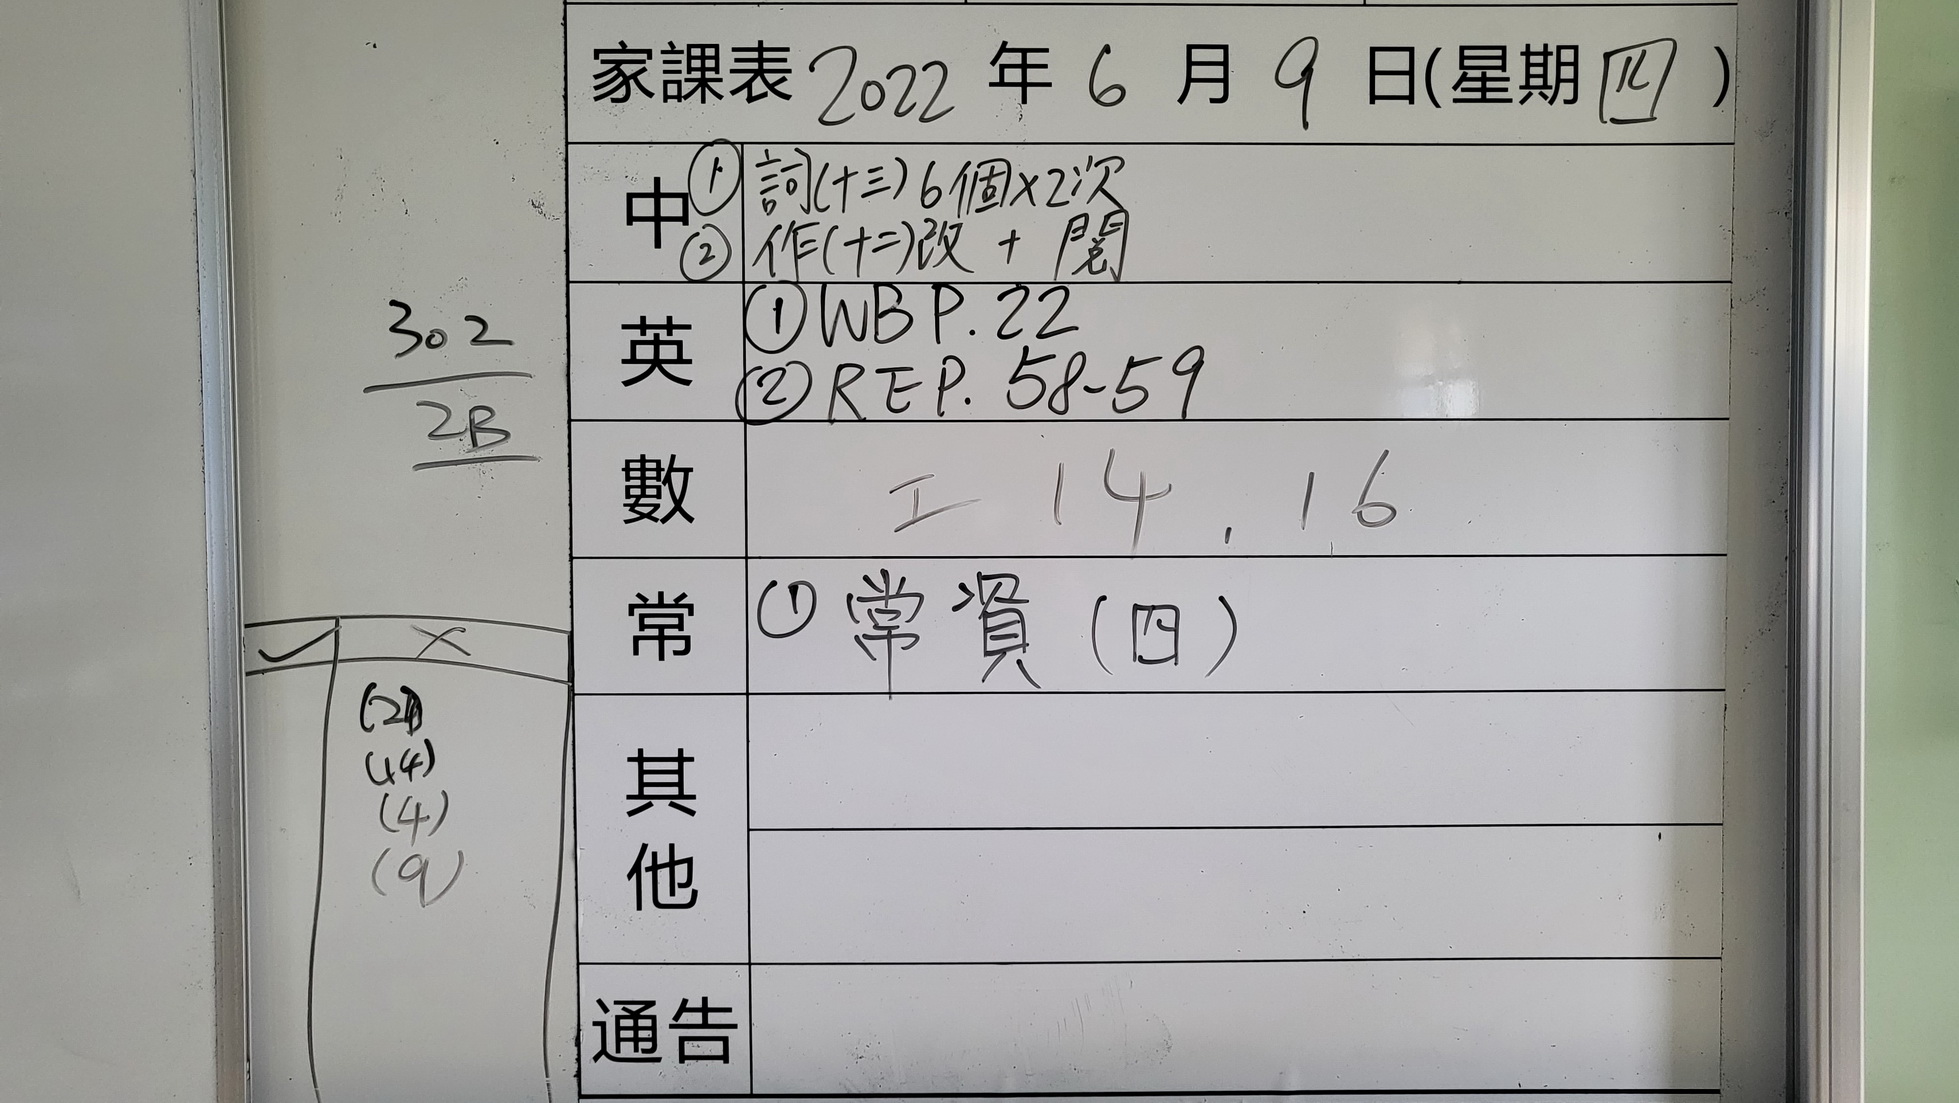 家課表 2022 年 6 月 9 日(星期四)
中 ① 詞(十三)6個×2次
② 作(十二)改 + 閱
英 ① WB P.22
② RE P. 58-59
數 工 14 , 16
常 ① 常資(四)
其他
通告
302
2B
✓ ×
(21)
(14)
(4)
(9)